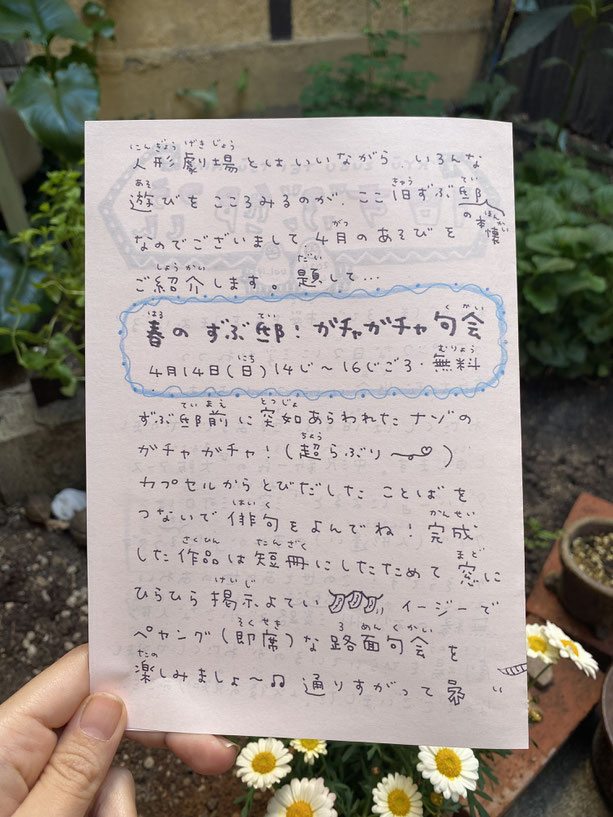 人形劇場とはいいながら、いろんな
遊びをこころみるのが、ここ旧ずぶ邸
の本懐
なのでございまして、4月のあそびを
ご紹介します。題して…
春のずぶ邸！ガチャガチャ句会
4月14日(日)14じ〜16じごろ・無料
ずぶ邸前に突如あらわれたナゾの
ガチャガチャ！(超らぶり〜♡)
カプセルからとびだしたことばを
つないで俳句をよんでね！完成
した作品は短冊にしたためて窓に
ひらひら掲示よてい イージーで
ペヤング(即席)な路面句会を
楽しみましょ〜♫ 通りすがって